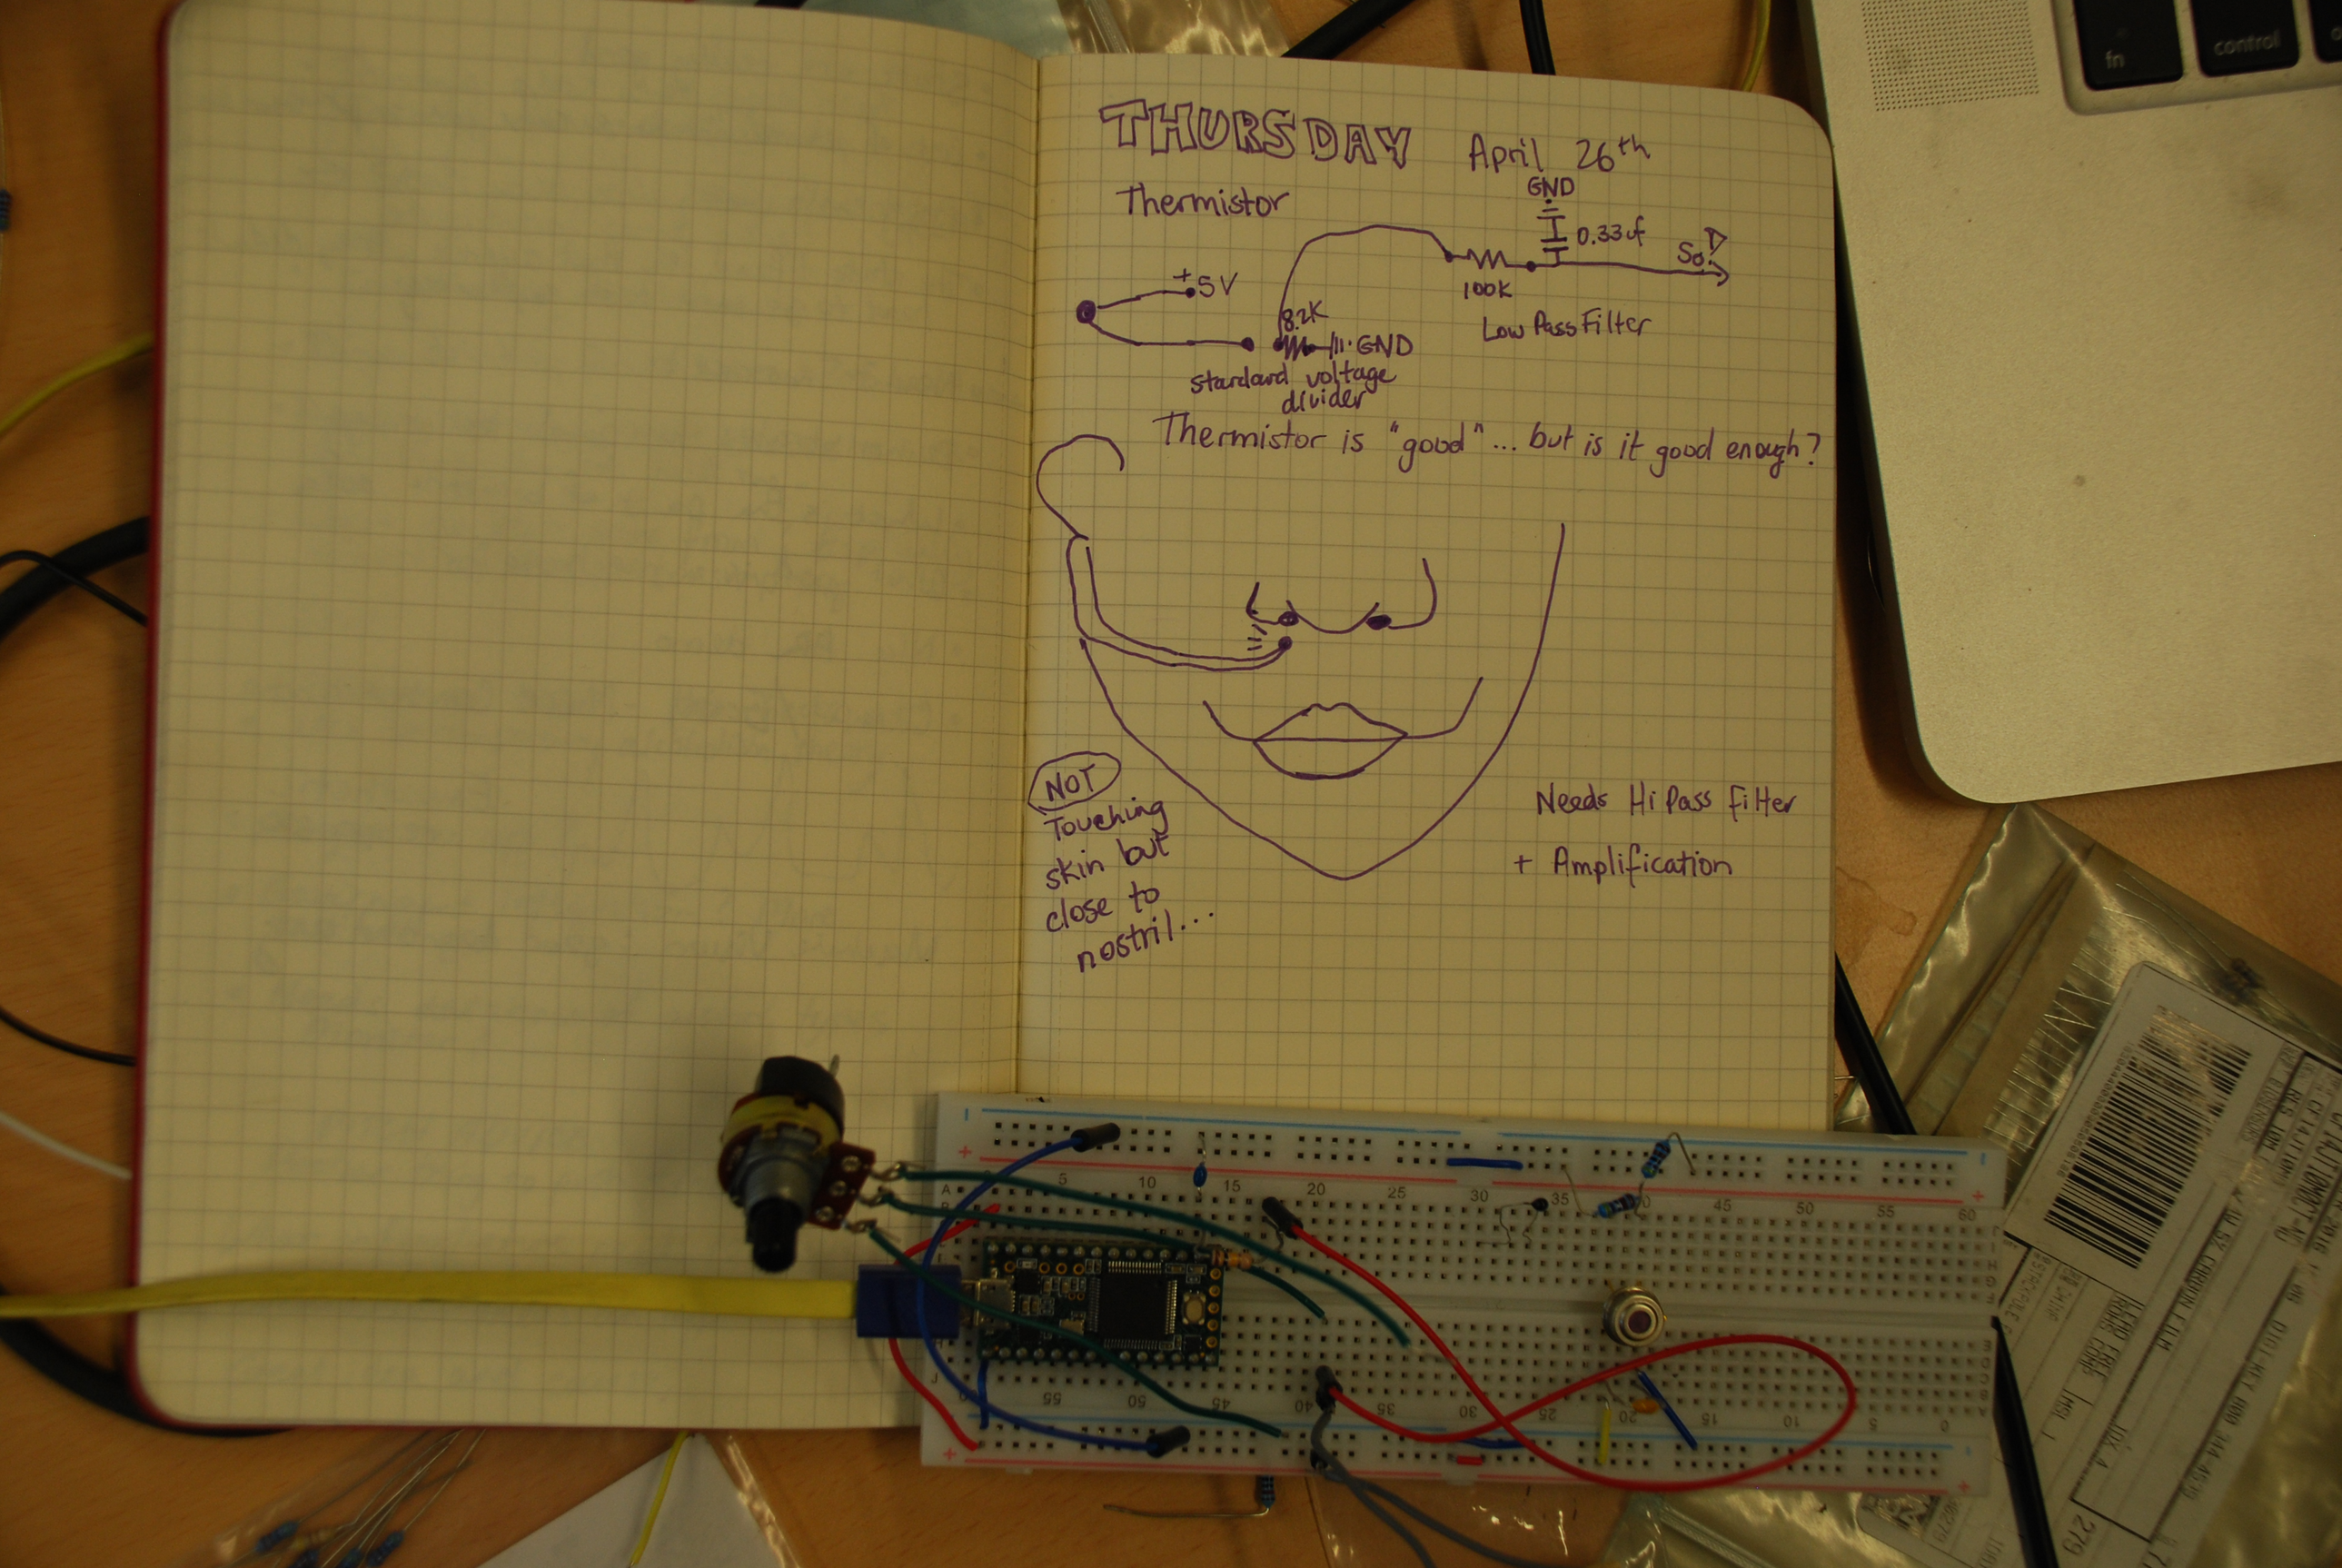 fn
control
THURSDAY April 26th
Thermistor
GND
0.33uf
+5V
100K
Low Pass Filter
8.2K
GND
standard voltage
divider
Thermistor is "good"... but is it good enough?
NOT
Touching
skin but
close to
nostril...
Needs Hi Pass Filter
+ Amplification
5 10 15 20 25 30 35 40 45 50 55 60
A
60 55 50 45 40 35 30 25 20 15 10 5 0
J
CARBON FILM
LEAD FREE
ROHS COMP
MSL 1
279